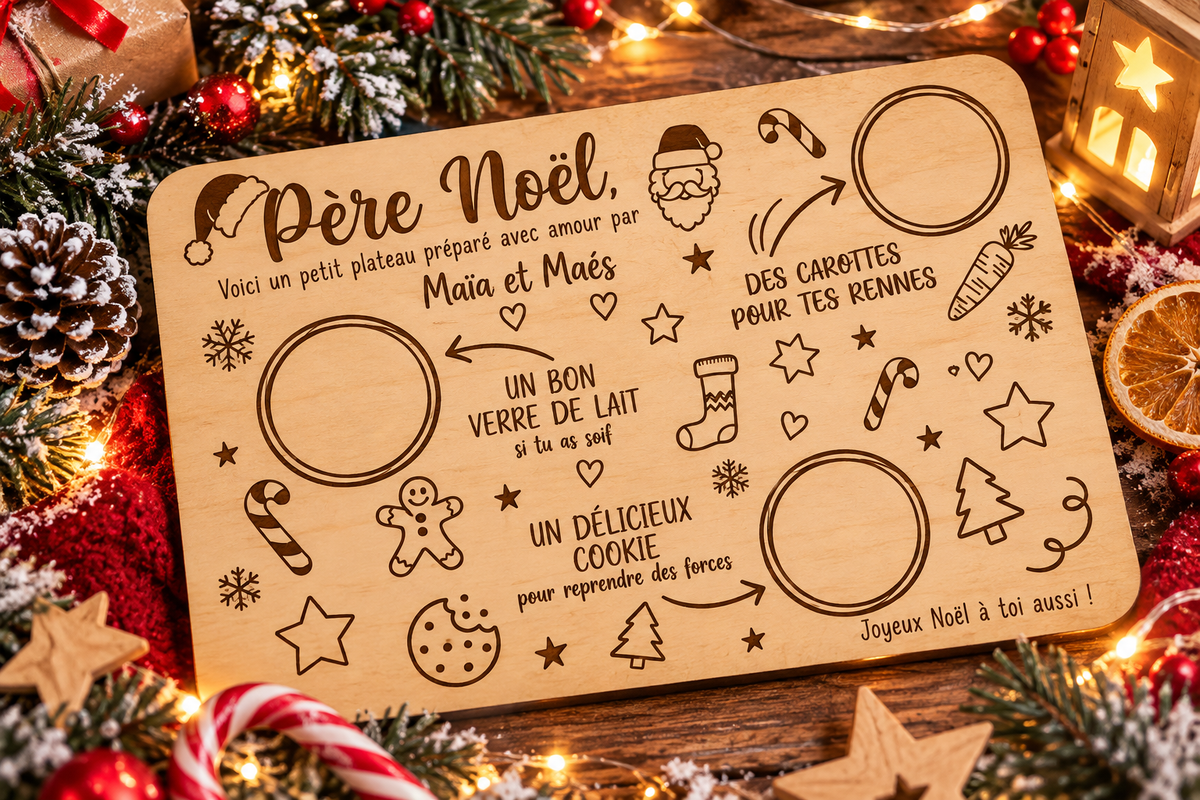 Père Noël,
Voici un petit plateau préparé avec amour par
Maïa et Maés
DES CAROTTES
POUR TES RENNES
UN BON
VERRE DE LAIT
si tu as soif
UN DÉLICIEUX
COOKIE
pour reprendre des forces
Joyeux Noël à toi aussi !